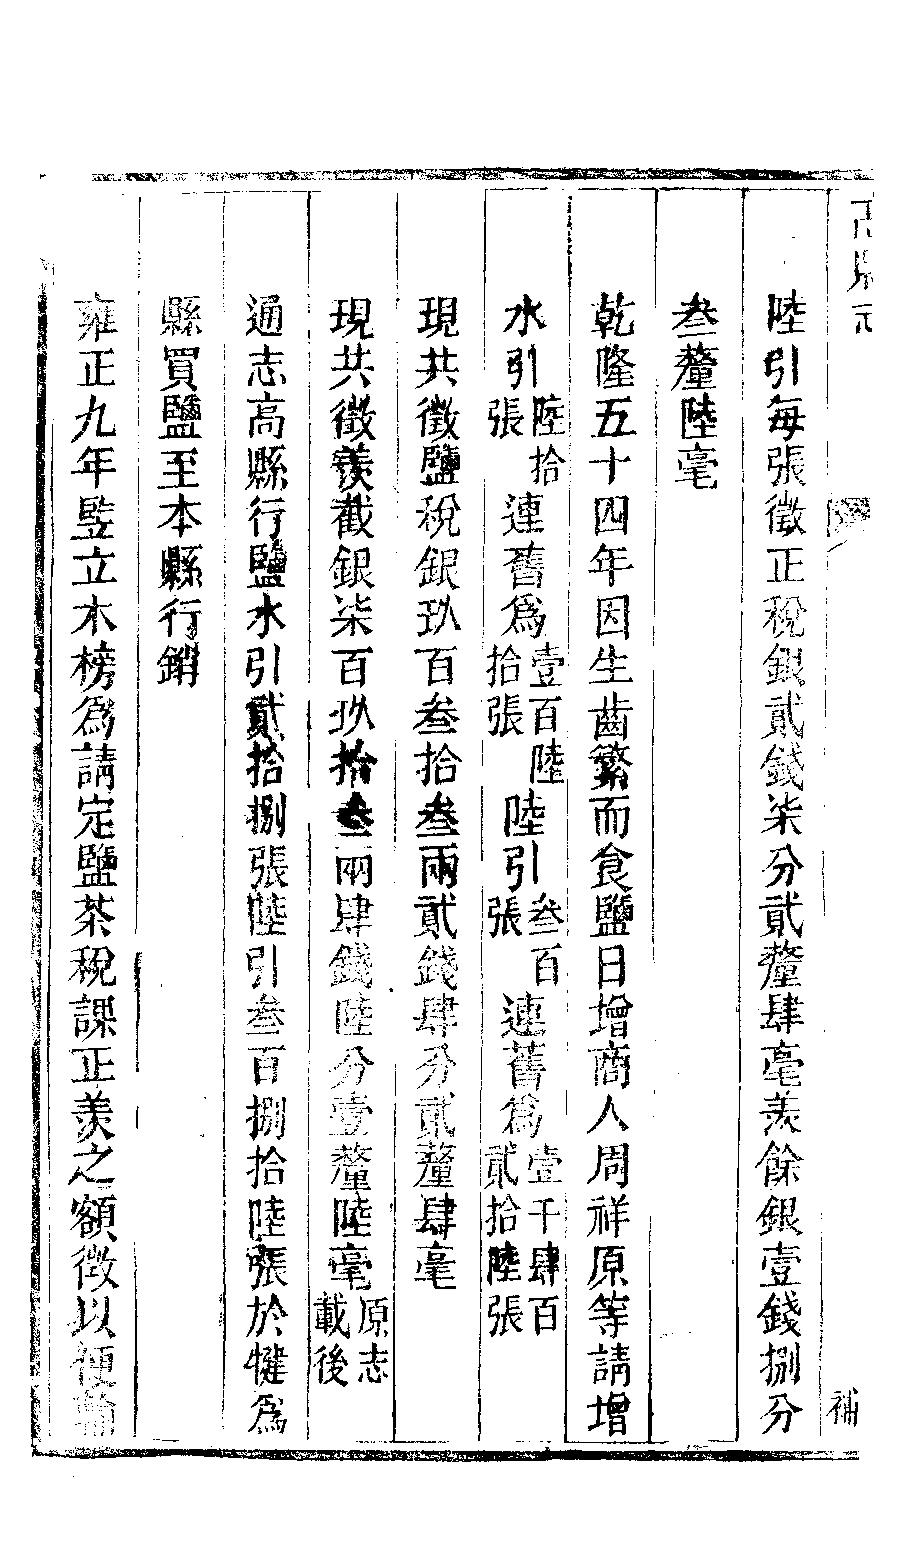 陸引每張徵正稅銀貳錢柒分貳釐肆毫羨餘銀壹錢捌分
叁釐陸毫
乾隆五十四年因生齒繁而食鹽日增商人周祥原等請增
水引陸拾張連舊爲壹百陸拾張陸引叁百張連舊爲壹千肆百貳拾陸張
現共徵鹽稅銀玖百叁拾叁兩貳錢肆分貳釐肆毫
現共徵羨截銀柒百玖拾叁兩肆錢陸分壹釐陸毫原志載後
通志高縣行鹽水引貳拾捌張陸引叁百捌拾陸張於犍爲
縣買鹽至本縣行銷
雍正九年竪立木榜爲請定鹽茶稅課正羨之額徵以便輸
補